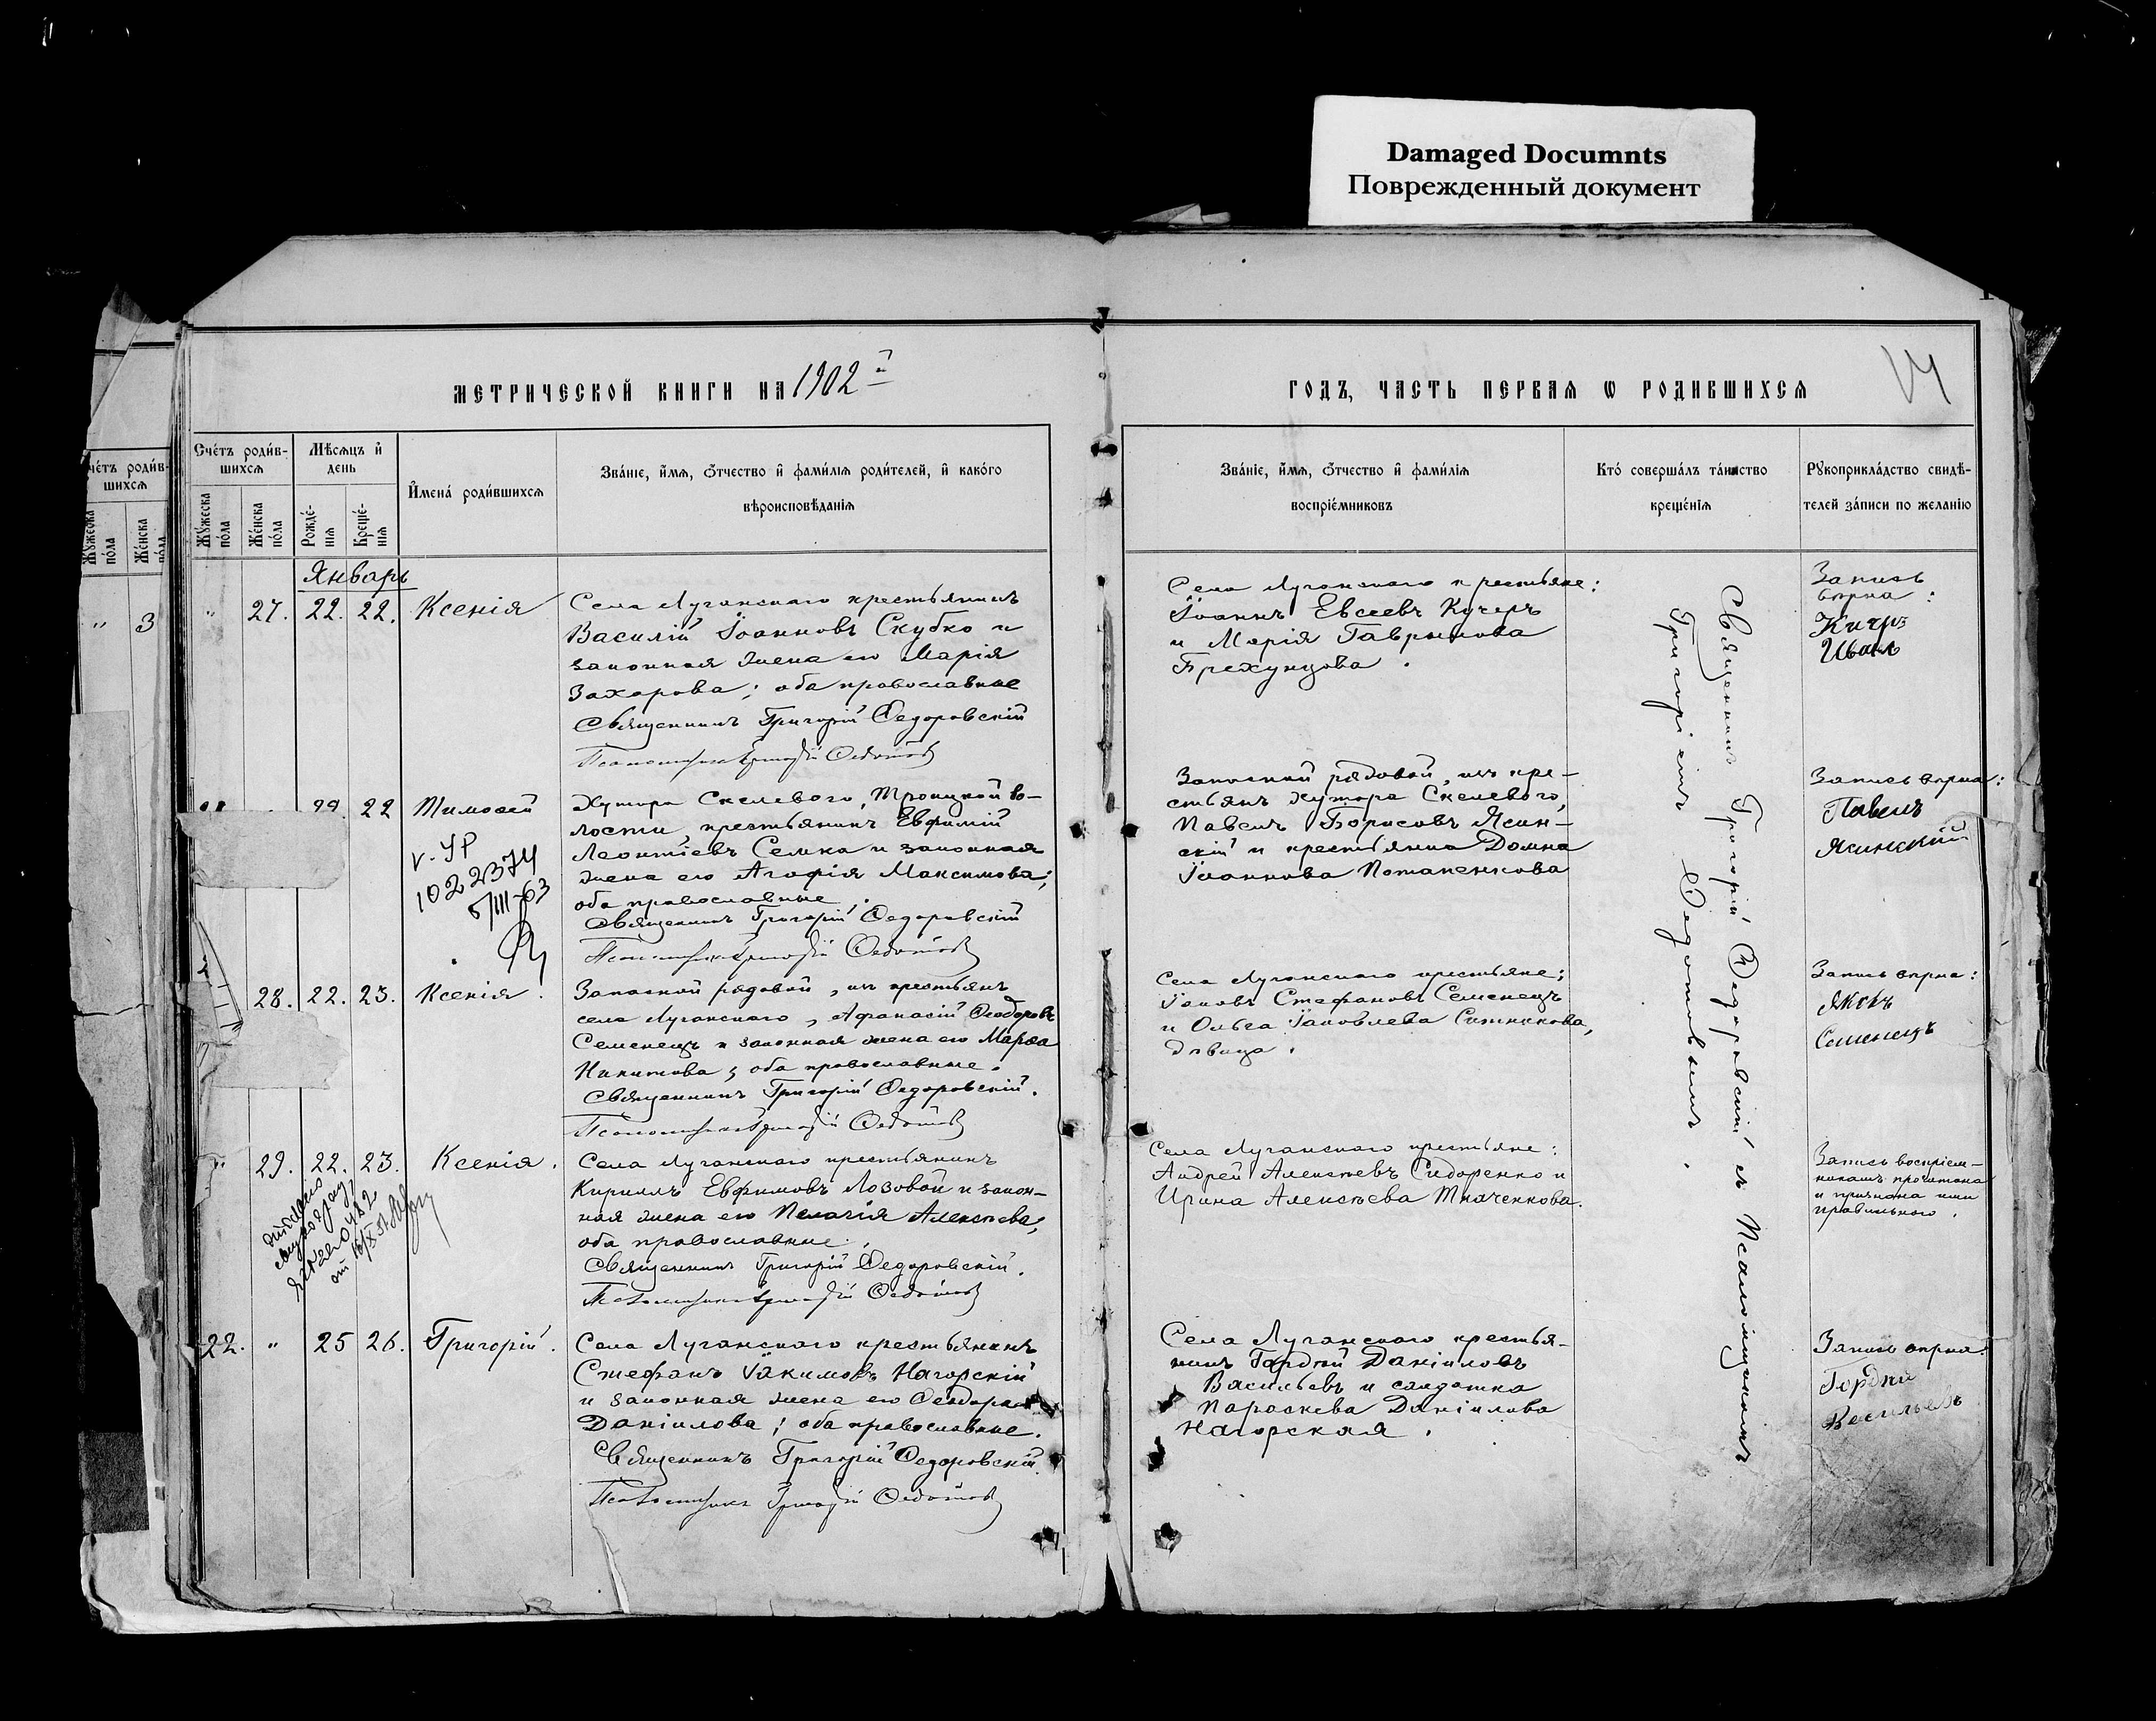 Damaged Documnts
Поврежденный документ
МЕТРИЧЕСКОЙ КНИГИ НА 1902 й
Счетъ родив-
шихся
Мѣсяцъ и
день
Имена родившихся
Званіе, имя, отчество и фамилія родителей, и какого
вѣроисповѣданія
Мужеска
пола
Женска
пола
Рожде-
нія
Креще-
нія
Январь
" 27. 22. 22. Ксенія
Села Луганскаго крестьянинъ
Василій Іоанновъ Скубко и
законная жена его Марія
Захарова; оба православные
Священникъ Григорій Федоровскій
Псаломщикъ Григорій Федотовъ
22. 22 Тимоѳей
102 2374
5/III-63
Хутора Скелевого, Троицкой во-
лости, крестьянинъ Евфимій
Леонтіевъ Семка и законная
жена его Агафія Максимова;
оба православные.
Священникъ Григорій Федоровскій
Псаломщикъ Григорій Федотовъ
28. 22. 23. Ксенія.
Запасной рядовой, изъ крестьянъ
села Луганскаго, Афанасій Ѳеодоровъ
Семенецъ и законная жена его Марѳа
Никитова; оба православные.
Священникъ Григорій Федоровскій.
Псаломщикъ Григорій Федотовъ
" 29. 22. 23. Ксенія.
Села Луганскаго крестьянинъ
Кириллъ Евфимовъ Лозовой и закон-
ная жена его Пелагія Алексѣева,
оба православные.
Священникъ Григорій Федоровскій.
Псаломщикъ Григорій Федотовъ
22. " 25 26. Григорій.
Села Луганскаго крестьянинъ
Стефанъ Іакимовъ Нагорскій
и законная жена его Ѳеодора
Даніилова; оба православные.
Священникъ Григорій Федоровскій
Псаломщикъ Григорій Федотовъ
ГОДЪ, ЧАСТЬ ПЕРВАЯ Ѡ РОДИВШИХСЯ
Званіе, имя, отчество и фамилія
воспріемниковъ
Кто совершалъ таинство
крещенія
Рукоприкладство свидѣ-
телей записи по желанію
Села Луганскаго крестьяне:
Іоаннъ Евсеевъ Кучеръ
и Марія Гаврилова
Брехунцова.
Запасной рядовой, изъ кре-
стьянъ хутора Скелевого,
Павелъ Борисовъ Ясин-
скій и крестьянка Домна
Іоаннова Потапенкова
Села Луганскаго крестьяне:
Іаковъ Стефановъ Семенецъ
и Ольга Іаковлева Ситникова,
дѣвица.
Села Луганскаго крестьяне:
Андрей Алексѣевъ Сидоренко и
Ирина Алексѣева Ткаченкова.
Села Луганскаго крестья-
нинъ Гордѣй Даніиловъ
Васильевъ и солдатка
Параскева Даніилова
Нагорская.
Священникъ Григорій Федоровскій съ Псаломщикомъ
Григоріемъ Федотовымъ.
Запись
вѣрна:
Кучеръ
Иванъ
Запись вѣрна:
Павелъ
Ясинскій
Запись вѣрна:
Яковъ
Семенецъ
Запись воспріем-
никамъ прочитана
и признана ими
правильною.
Запись вѣрна:
Гордѣй
Васильевъ
четъ родив-
шихся
Мужеска
пола
Женска
пола
" 3